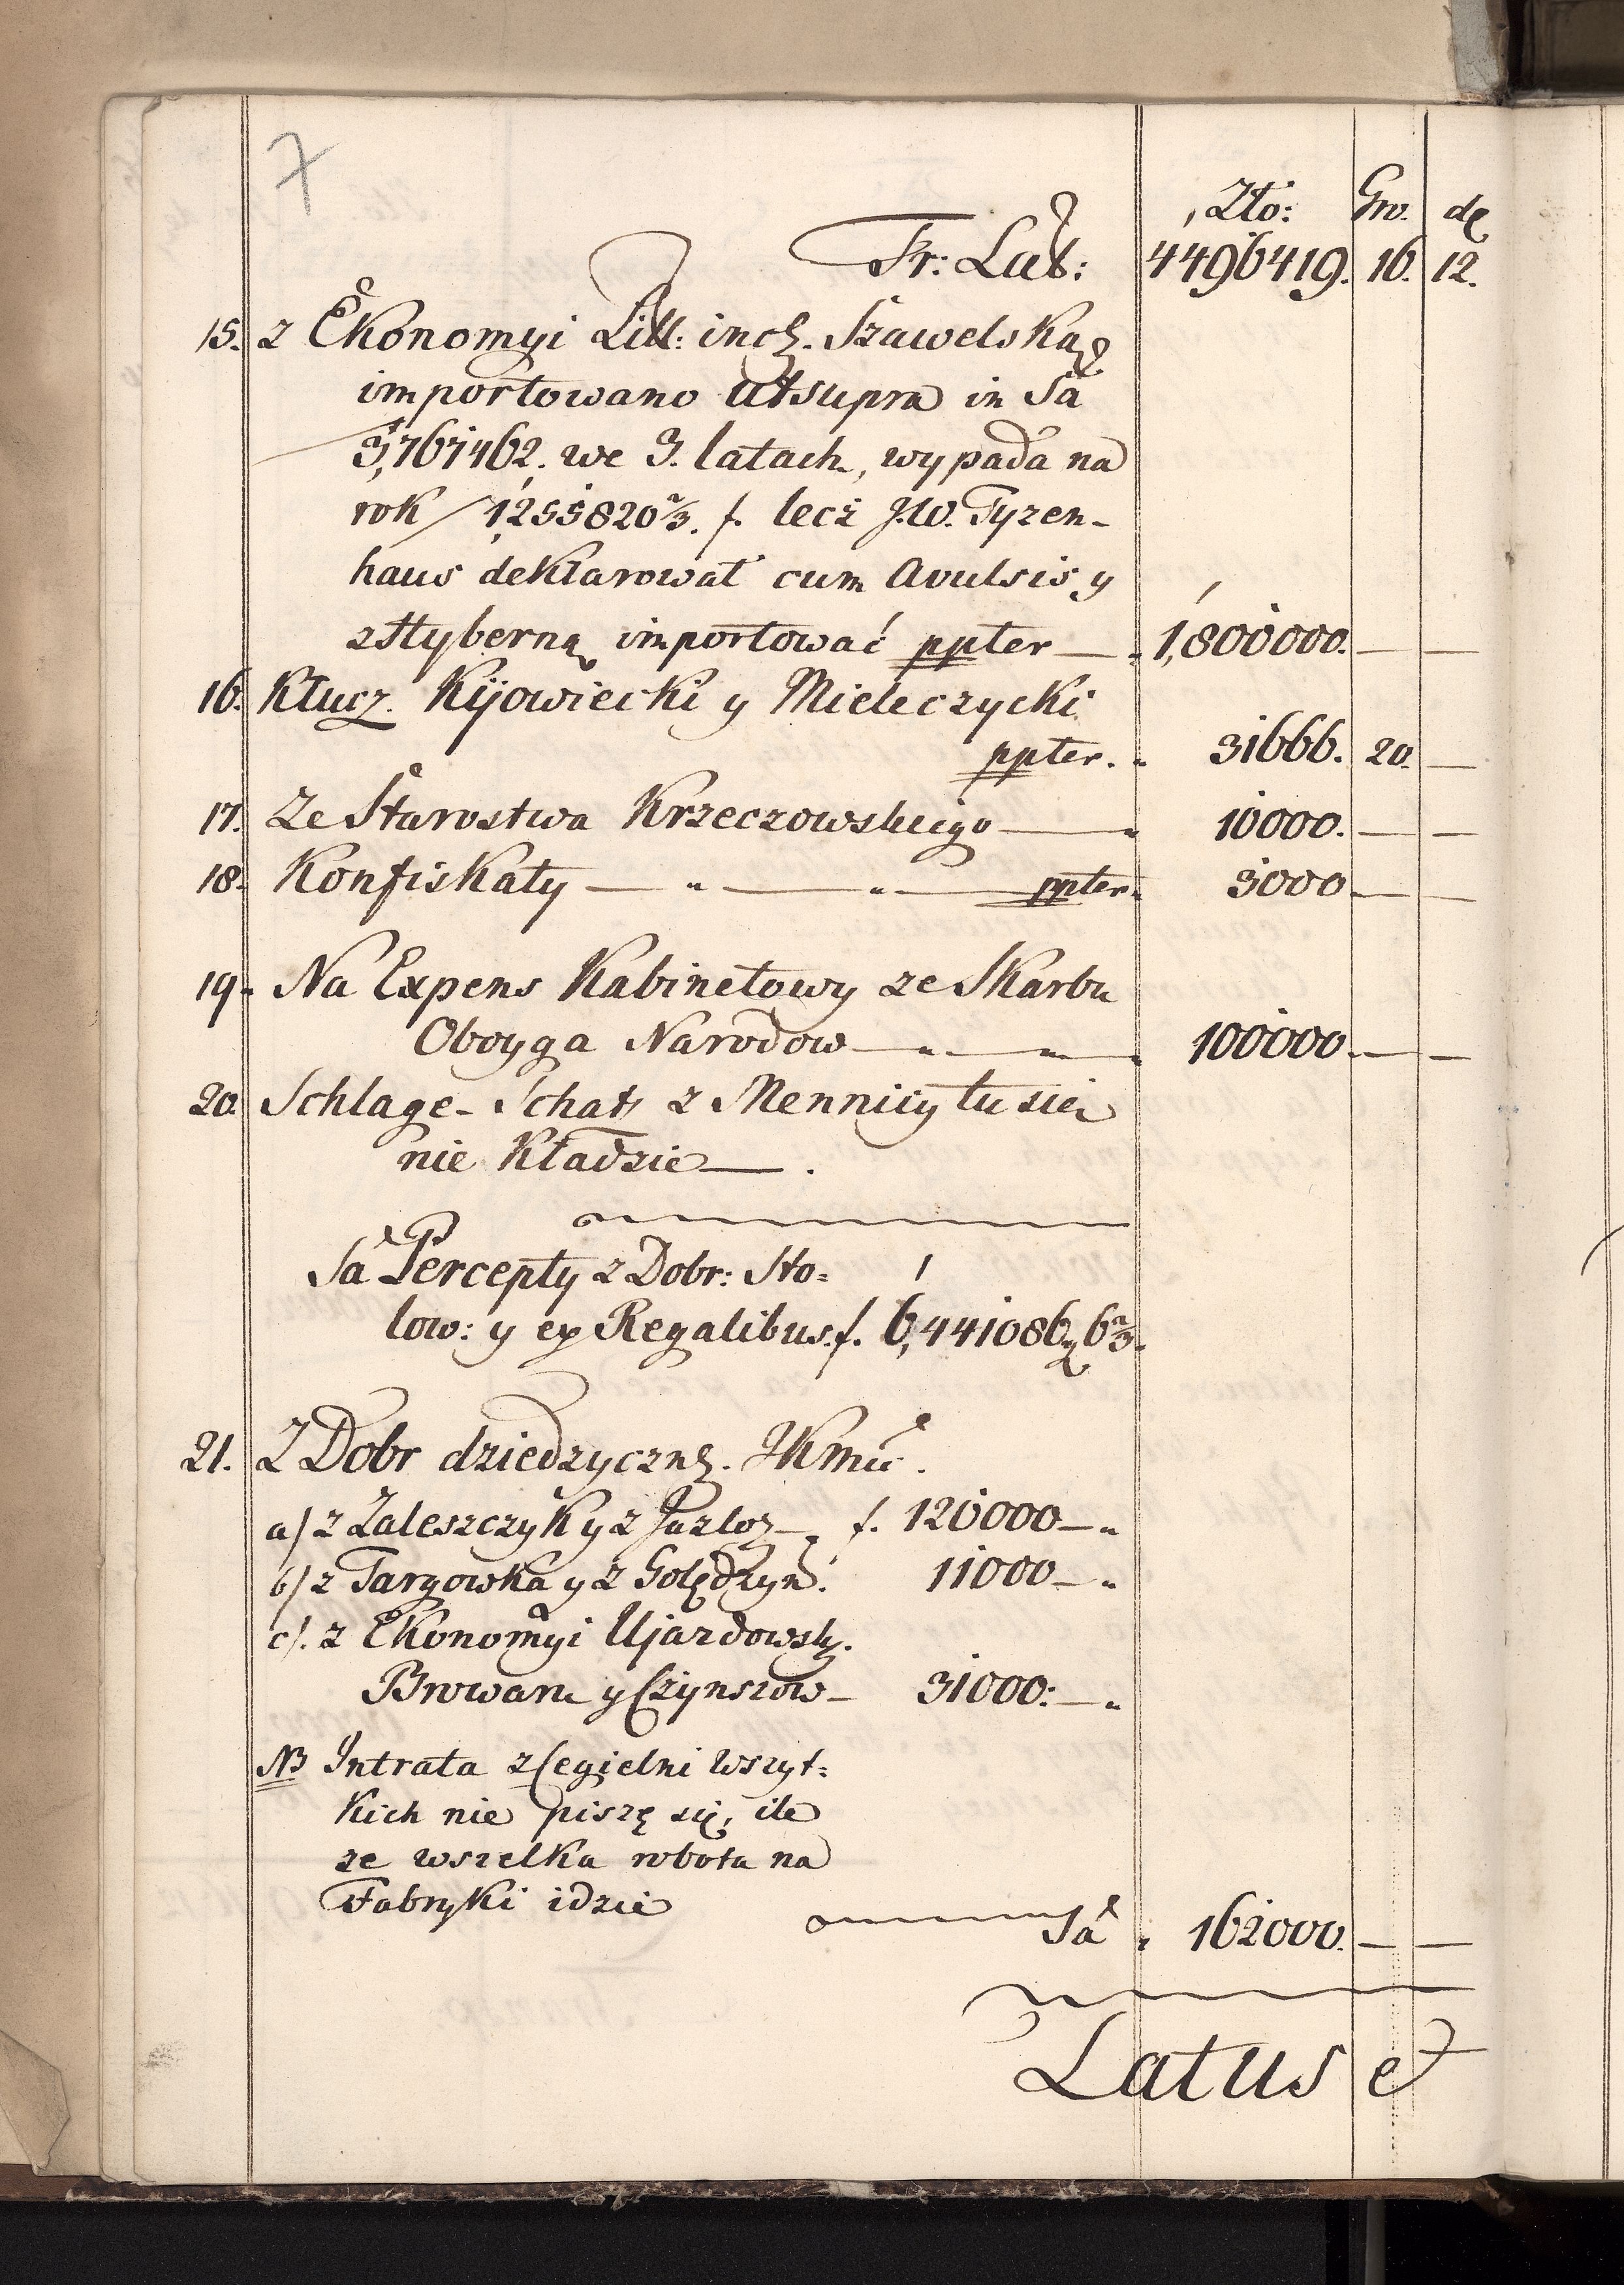 7
Zło: Gro. de
Tr: Lat: 4496419. 16. 12.
15. z Ekonomyi Litt: inch. Szawelską
importowano utsupra in Sa
3,767462. we 3. latach, wypada na
rok / 1,255820⅔. f. lecz J.W. Tyzen-
haus deklarował cum Avulsis y
z Hyberną importować ppter — 1,800000. — —
16. Klucz. Kijowiecki y Mieleczycki
ppter. 31666. 20. —
17. Ze Starostwa Krzeczowskiego — 10000. — —
18. Konfiskaty — " — " — ppter 3000 — —
19. Na Expens Kabinetowy ze Skarbu
Oboyga Narodow — " — " — 100000. — —
20. Schlage-Schatz z Mennicy tu się
nie kładzie — .
Sa Percepty z Dobr: Sto=
low: y ex Regalibus. f. 6,441086, 6⅔.
21. Z Dobr dziedzycznch. JKmci.
a) z Zaleszczyk y z Jazłow f. 120000 — "
b) z Targowka y z Golędzyn: 11000 — "
c). z Ekonomyi Ujazdowsk.
Browaru y Czynszow — 31000: — "
NB Intrata z Cegielni wszyt=
kich nie piszę się, ile
ze wszelka robota na
Fabryki idzie
Sa 162000. — —
Latus et